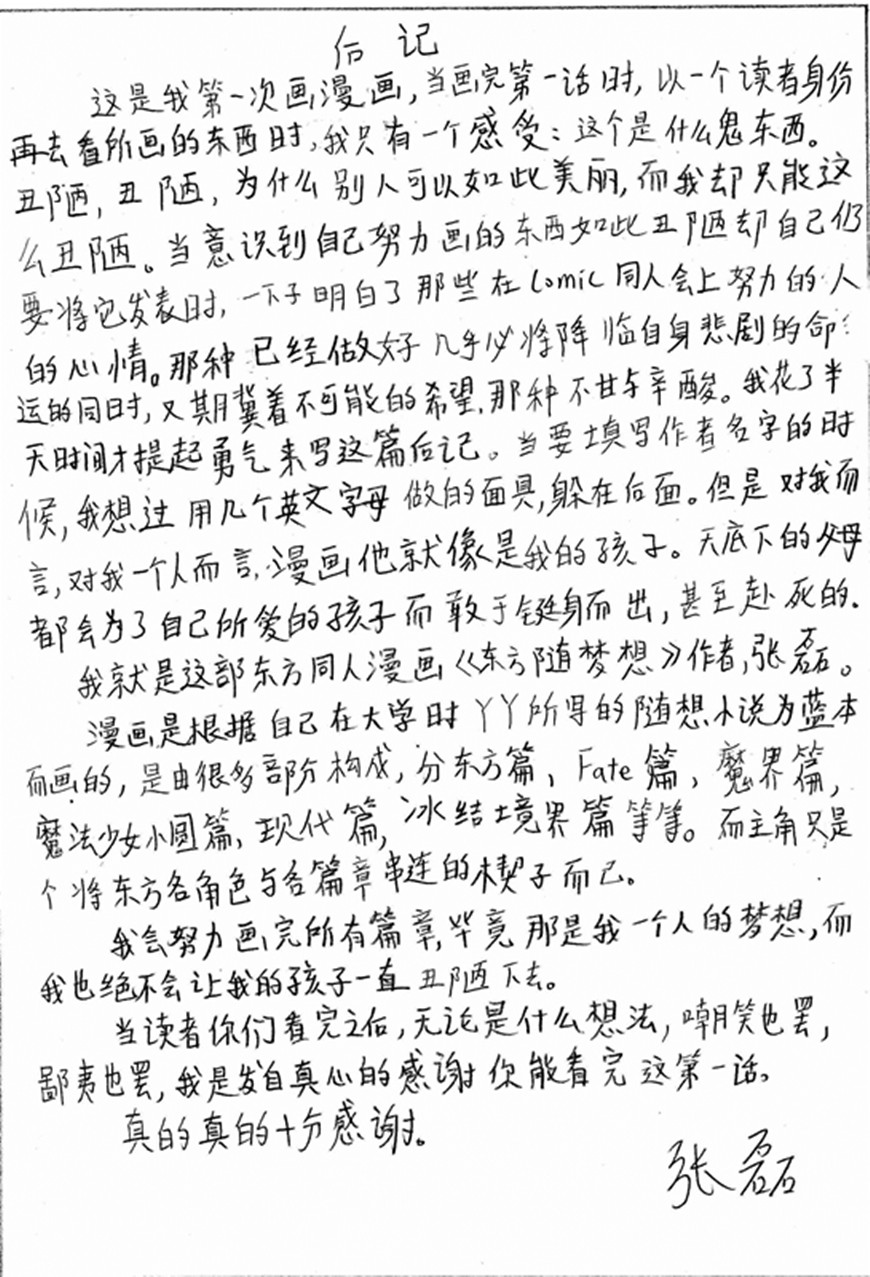 后记
这是我第一次画漫画,当画完第一话时,以一个读者身份
再去看所画的东西时,我只有一个感受:这个是什么鬼东西。
丑陋,丑陋,为什么别人可以如此美丽,而我却只能这
么丑陋。当意识到自己努力画的东西如此丑陋却自己仍
要将它发表时,一下子明白了那些在Comic同人会上努力的人
的心情。那种已经做好几乎必将降临自身悲剧的命
运的同时,又期冀着不可能的希望,那种不甘与辛酸。我花了半
天时间才提起勇气来写这篇后记。当要填写作者名字的时
候,我想过用几个英文字母做的面具,躲在后面。但是对我而
言,对我一个人而言,漫画他就像是我的孩子。天底下的父母
都会为了自己所爱的孩子而敢于铤身而出,甚至赴死的.
我就是这部东方同人漫画《东方随梦想》作者,张磊。
漫画是根据自己在大学时丫丫所写的随想小说为蓝本
而画的,是由很多部分构成,分东方篇、Fate篇、魔界篇,
魔法少女小圆篇,现代篇,冰结境界篇等等。而主角只是
个将东方各角色与各篇章串连的楔子而已。
我会努力画完所有篇章,毕竟那是我一个人的梦想,而
我也绝不会让我的孩子一直丑陋下去。
当读者你们看完之后,无论是什么想法,嘲笑也罢,
鄙夷也罢,我是发自真心的感谢你能看完这第一话。
真的真的十分感谢。
张磊